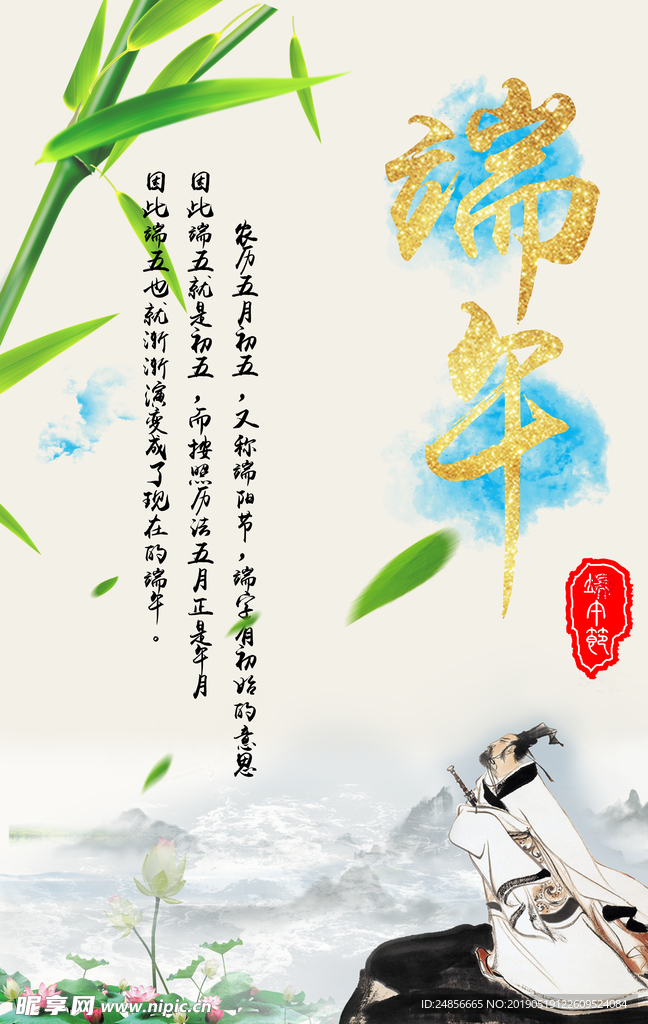 端午
端午節
农历五月初五，又称端阳节，端字有初始的意思
因此端五就是初五，而按照历法五月正是午月
因此端五也就渐渐演变成了现在的端午。
昵享网 www.nipic.cn
ID:24856665 NO:20190519122609524084